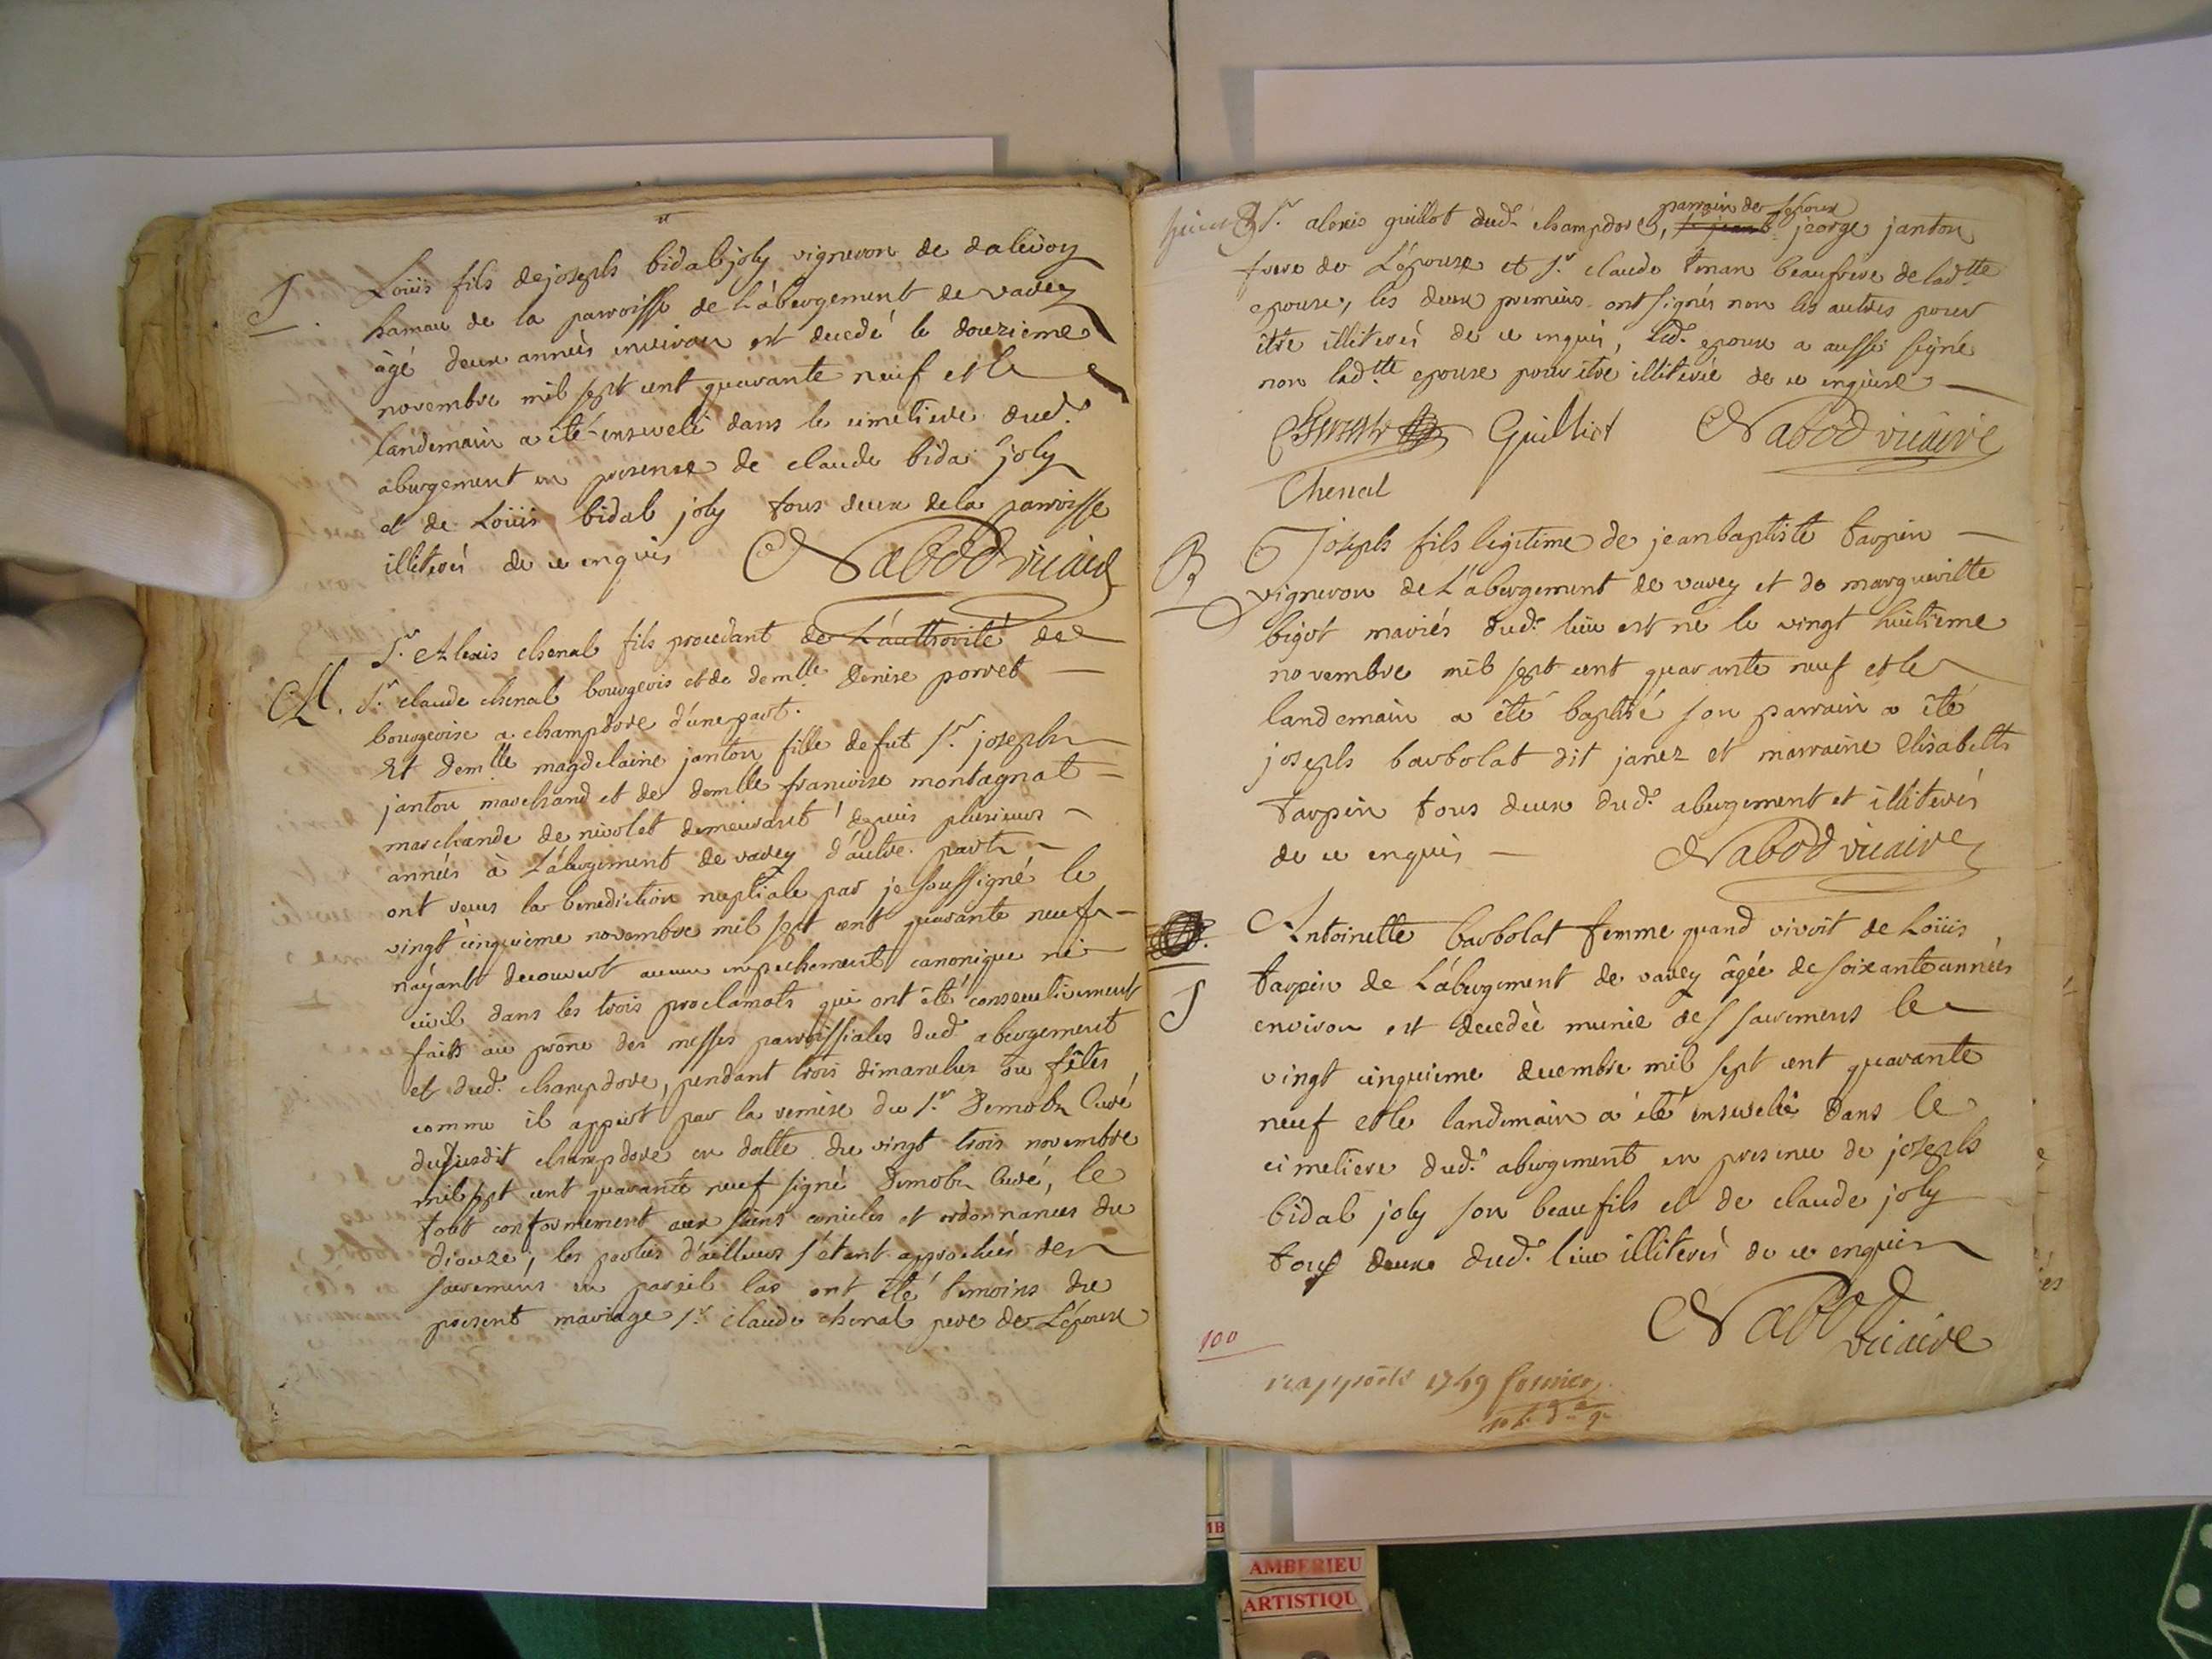 S
Loüis fils de joseph bidal joly vigneron de dalivoy
hamau de la parroisse de L'abergement de varey
âgé deux années environ est decedé le douzieme
novembre mil sept cent quarante neuf et le
landemain a été enseveli dans le cimetiere dud.
abergement en presense de claude bidal joly
et de Loüis bidal joly tous deux de la parroisse
illiterés de ce enquis Nabod vicaire
M.
Sr. Alexis chenal fils procedant de L'authorité de
Sr. claude chenal bourgeois et de demlle denise porret
bourgeoise a champdore d'une part.
Et demlle magdelaine janton fille de fut Sr. joseph
janton marchand et de demlle francoise montagnat
marchande de nivolet demeurant depuis plusieurs
années à L'abergement de varey d'autre part
ont reçus la benediction nuptiale par je soussigné le
vingt cinquieme novembre mil sept cent quarante neuf
n'ayant decouvert aucun empechement canonique ni
civil dans les trois proclamats qui ont été consecutivement
faits au prône des messes parroissiales dud. abergement
et dud. champdore, pendant trois dimanches ou fêtes
comme il appert par la remise du Sr. Curé
dususdit champdore en datte du vingt trois novembre
mil sept cent quarante neuf signé Curé, le
tout conformement aux saints conciles et ordonnances du
dioeze, les parties d'ailleurs s'étant approchées des
sacremens en pareil cas ont été temoins du
present mariage Sr. claude chenal pere de L'époux
Sr. alexis guillot dud. champdore, parrain de Lepoux jeorge janton
frere de L'épouse et Sr. claude beaufrere de ladtte
epouse, les deux premiers ont signés non les autres pour
être illiterés de ce enquis, Led. epoux a aussi signé
non ladtte epouse pour être illiterée de ce enquise
Guilliot Nabod vicaire
Chenal
B
Joseph fils legitime de jean baptiste tarpin
vigneron de L'abergement de varey et de marguerite
bigot mariés dud. lieu est né le vingt huitieme
novembre mil sept cent quarante neuf et le
landemain a été baptisé son parrain a été
joseph barbolat dit janez et marraine Elisabeth
tarpin tous deux dud. abergement et illiterés
de ce enquis Nabod vicaire
S
Antoinette barbolat femme quand vivoit de Loüis
tarpin de L'abergement de varey âgée de soixante années
environ est decedée munie des sacremens le
vingt cinquieme decembre mil sept cent quarante
neuf et le landemain a été ensevelie dans le
cimetiere dud. abergement en presence de joseph
bidal joly son beaufils et de claude joly
tous deux dud. lieu illiterés de ce enquis
Nabod
vicaire
100
rapporté 1749
AMBERIEU
ARTISTIQU